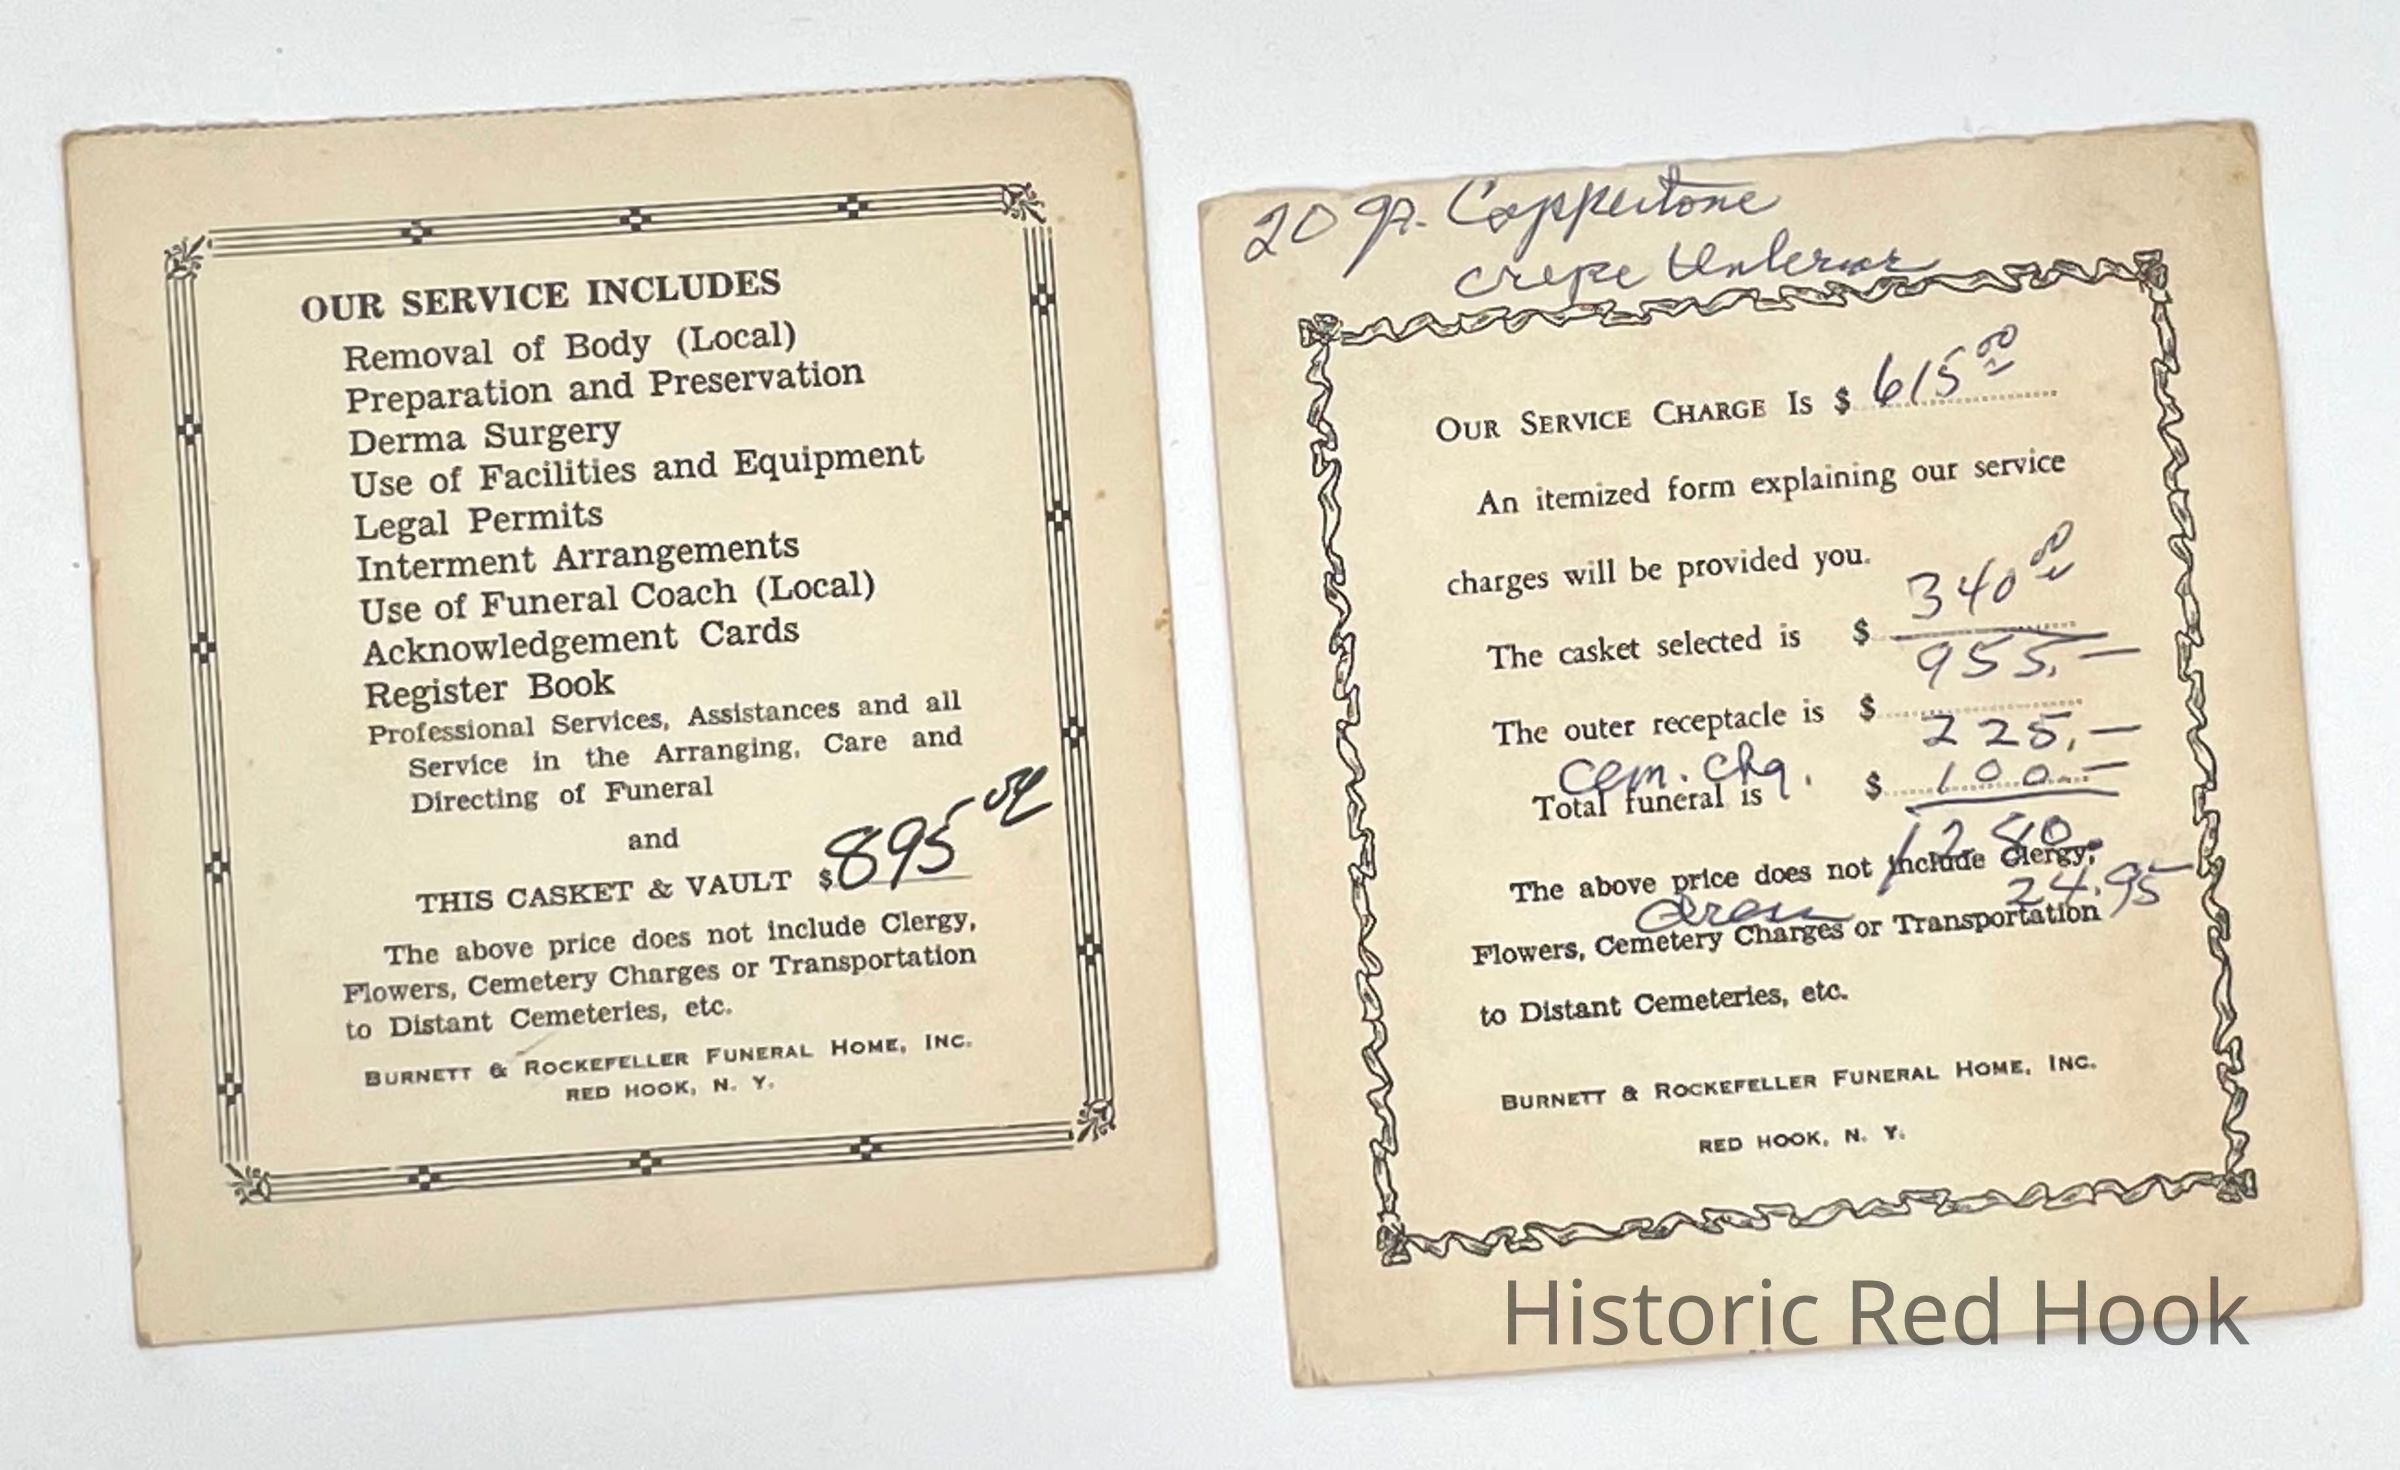 OUR SERVICE INCLUDES
Removal of Body (Local)
Preparation and Preservation
Derma Surgery
Use of Facilities and Equipment
Legal Permits
Interment Arrangements
Use of Funeral Coach (Local)
Acknowledgement Cards
Register Book
Professional Services, Assistances and all
Service in the Arranging, Care and
Directing of Funeral
and
THIS CASKET & VAULT $895
The above price does not include Clergy,
Flowers, Cemetery Charges or Transportation
to Distant Cemeteries, etc.
BURNETT & ROCKEFELLER FUNERAL HOME, INC.
RED HOOK, N. Y.
20 ga. Coppertone
crepe Interior
OUR SERVICE CHARGE IS $ 615 00
An itemized form explaining our service
charges will be provided you.
The casket selected is $ 340 00
955.—
The outer receptacle is $
225.—
cem. chg. 100—
Total funeral is $
1280.
The above price does not include Clergy,
24.95
Flowers, Cemetery Charges or Transportation
to Distant Cemeteries, etc.
BURNETT & ROCKEFELLER FUNERAL HOME, INC.
RED HOOK, N. Y.
Historic Red Hook